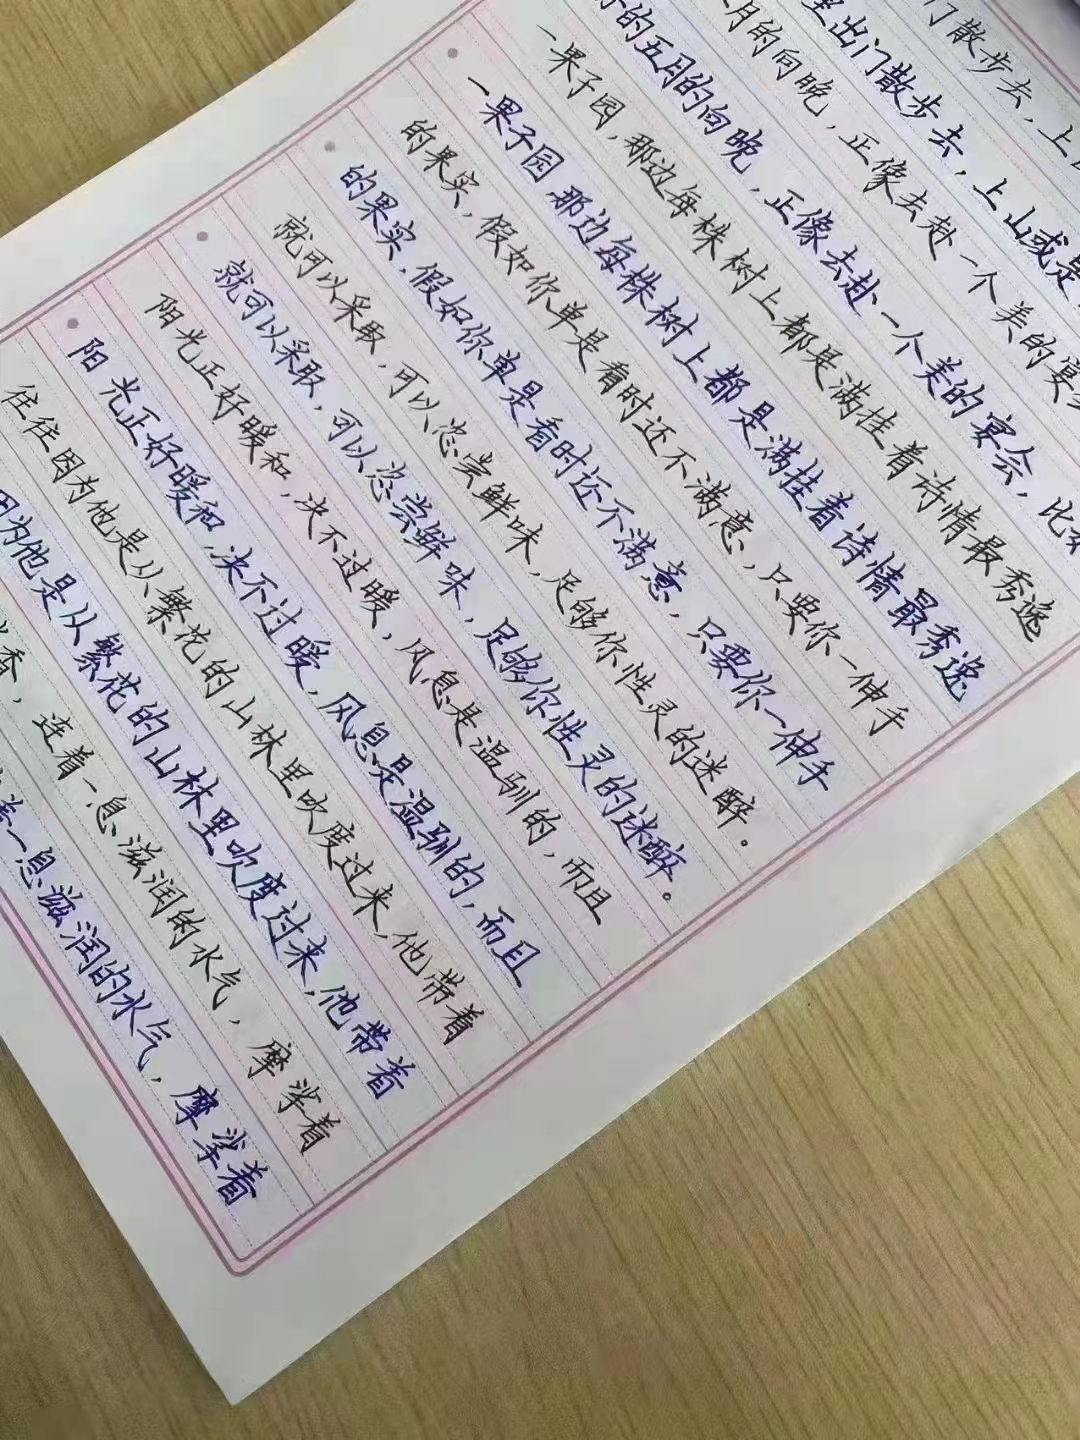 门散步去，上山
里出门散步去，上山或是
月的向晚，正像去赴一个美的宴
的五月的向晚，正像去赴一个美的宴会，比如
一果子园，那边每株树上都是满挂着诗情最秀逸
一果子园，那边每株树上都是满挂着诗情最秀逸
的果实，假如你单是看时还不满意，只要你一伸手
的果实，假如你单是看时还不满意，只要你一伸手
就可以采取，可以恣尝鲜味，足够你性灵的迷醉。
就可以采取，可以恣尝鲜味，足够你性灵的迷醉。
阳光正好暖和，决不过暖，风息是温驯的，而且
阳光正好暖和，决不过暖，风息是温驯的，而且
往往因为他是从繁花的山林里吹度过来，他带着
因为他是从繁花的山林里吹度过来，他带着
香，连着一息滋润的水气，摩挲着
着一息滋润的水气，摩挲着